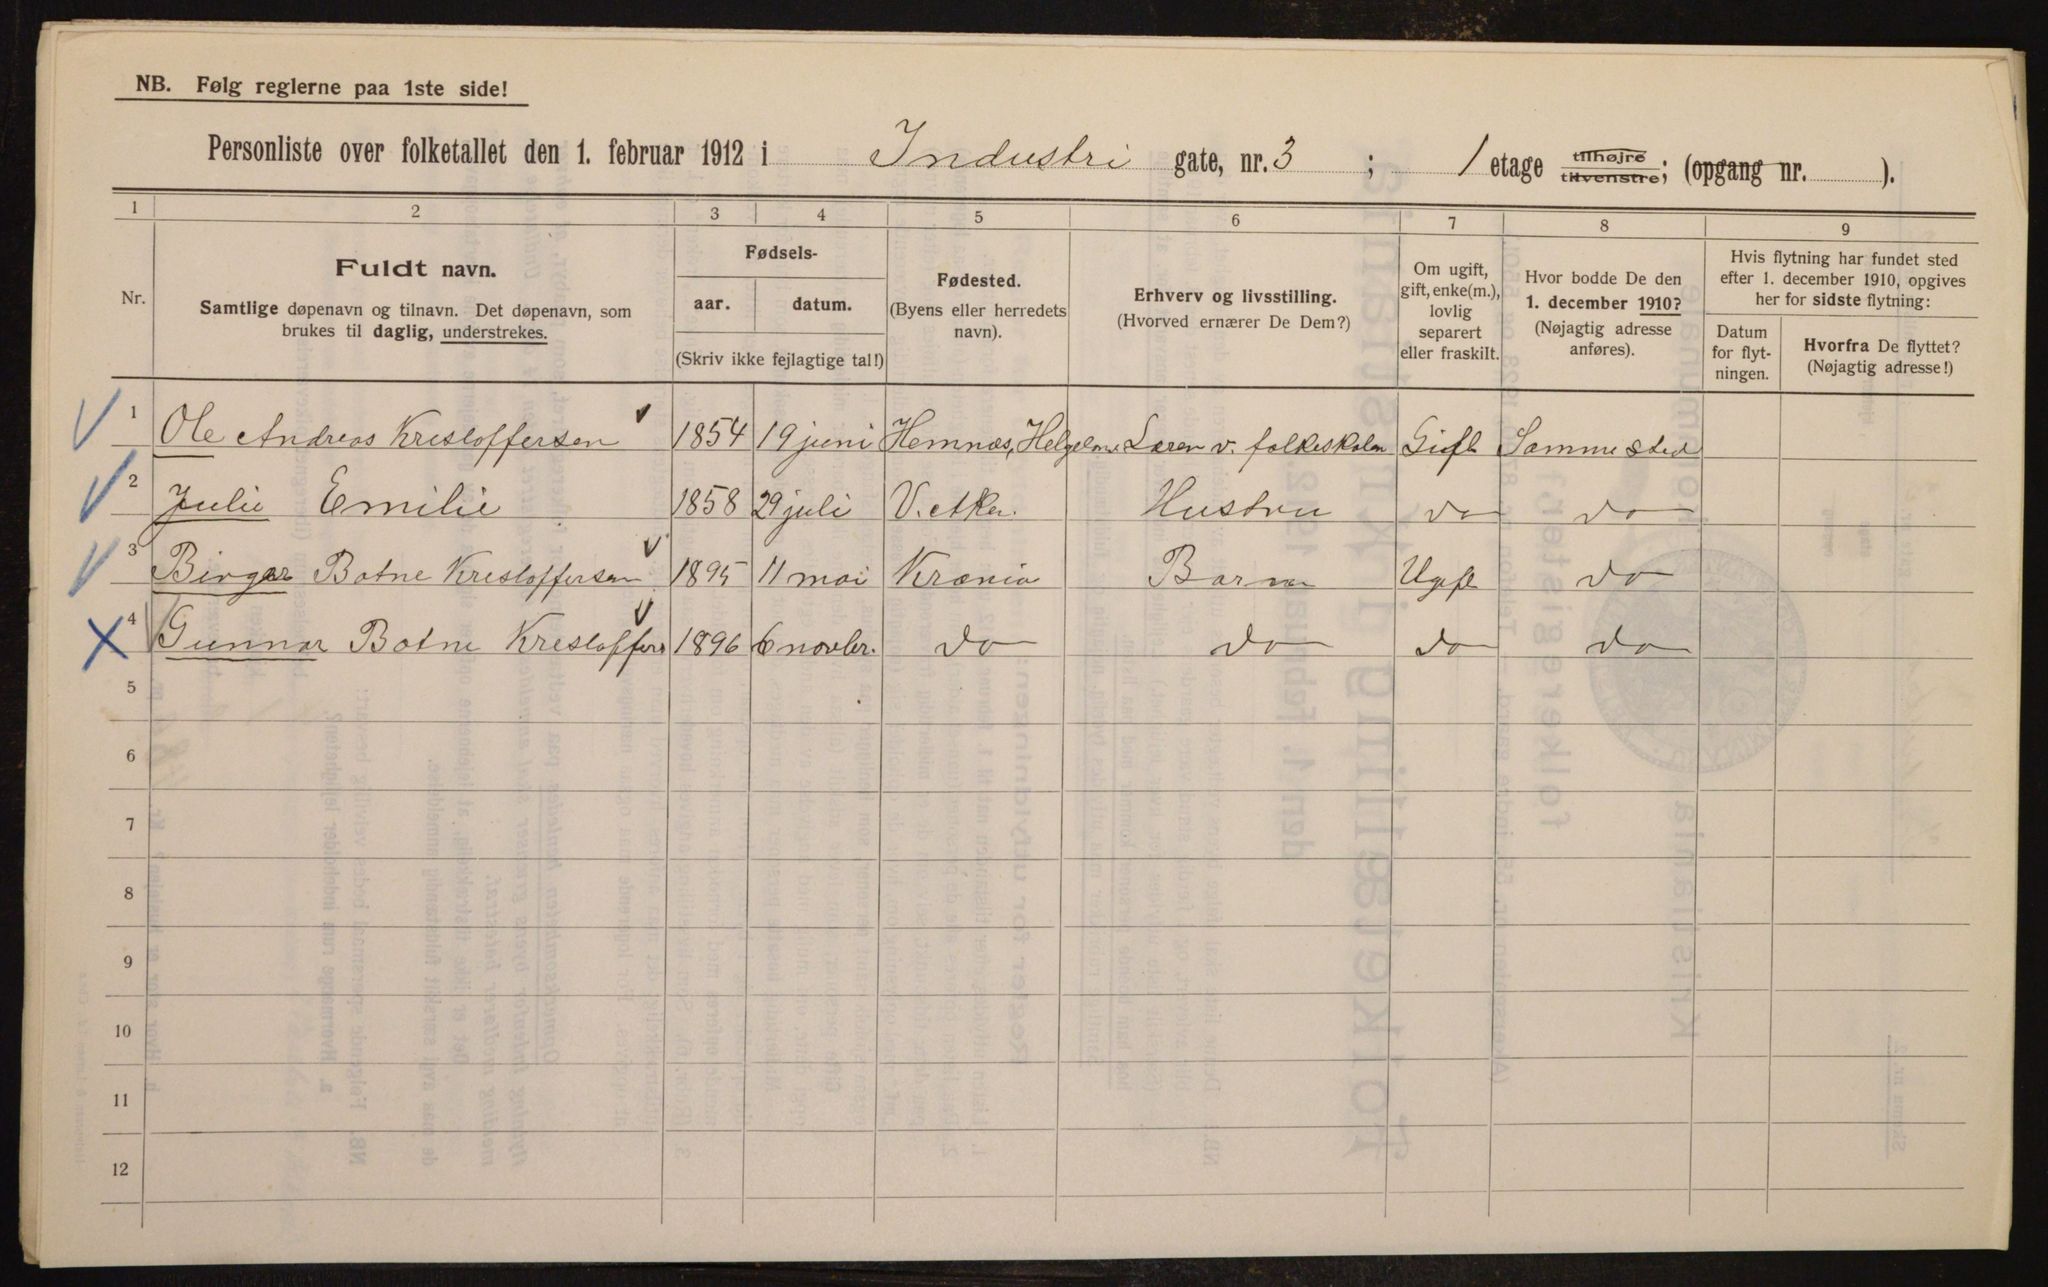 NB. Følg reglerne paa 1ste side!
Personliste over folketallet den 1. februar 1912 i Industri gate, nr. 3 ; 1 etage tilhøjre tilvenstre; (opgang nr. ).
1 2 3 4 5 6 7 8 9
Nr.
Fuldt navn.
Samtlige døpenavn og tilnavn. Det døpenavn, som
brukes til daglig, understrekes.
Fødsels-
aar. datum.
(Skriv ikke fejlagtige tal!)
Fødested.
(Byens eller herredets
navn).
Erhverv og livsstilling.
(Hvorved ernærer De Dem?)
Om ugift,
gift, enke(m.),
lovlig
separert
eller fraskilt.
Hvor bodde De den
1. december 1910?
(Nøjagtig adresse
anføres).
Hvis flytning har fundet sted
efter 1. december 1910, opgives
her for sidste flytning:
Datum
for flyt-
ningen.
Hvorfra De flyttet?
(Nøjagtig adresse!)
1 Ole Andreas Kristoffersen 1854 19 juni Hemnæs, Lærer v. folkeskolen Gift Samme sted
2 Julie Emilie 1858 29 juli V. Aker. Hustru do do
3 Birger Botne Kristoffersen 1895 11 mai Krania Barn Ugift do
4 Gunnar Botne Kristoffers 1896 6 novbr. do do do do
5
6
7
8
9
10
11
12